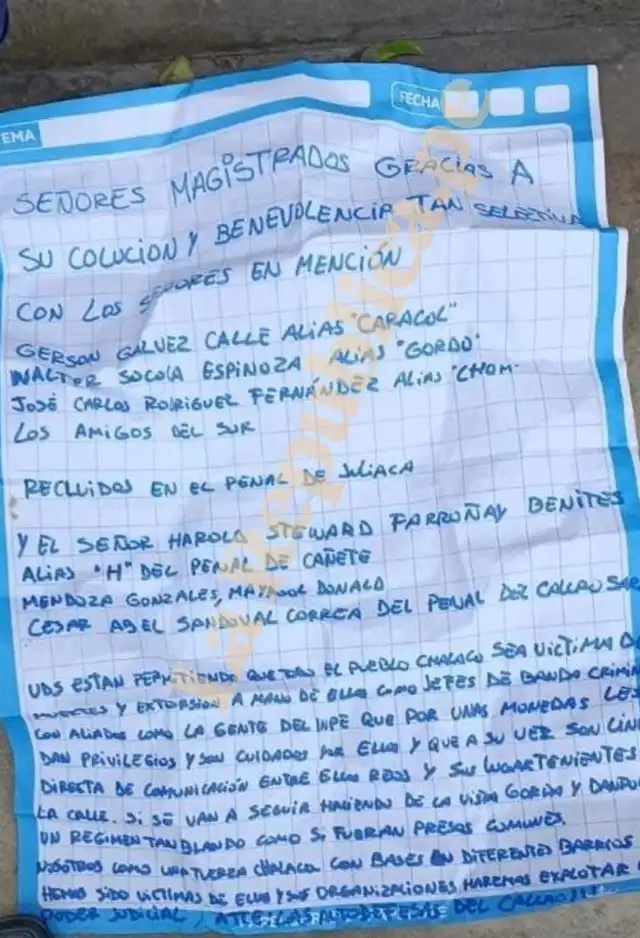 TEMA
FECHA
SEÑORES MAGISTRADOS GRACIAS A
SU COLUCION Y BENEVOLENCIA TAN SELECTIVA
CON LOS SEÑORES EN MENCIÓN
GERSON GALVEZ CALLE ALIAS "CARACOL"
WALTER SOCOLA ESPINOZA ALIAS "GORDO"
JOSÉ CARLOS RODRIGUEZ FERNÁNDEZ ALIAS "CHOM-
LOS AMIGOS DEL SUR
RECLUIDOS EN EL PENAL DE JULIACA
Y EL SEÑOR HAROLD STEWARD FARROÑAY BENITES
ALIAS "H" DEL PENAL DE CAÑETE
MENDOZA GONZALES, DONALD
CESAR ABEL SANDOVAL CORREA DEL PENAL DEL CALLAO
UDS ESTAN PERMITIENDO QUE TODO EL PUEBLO CHALACO SEA VICTIMA D
MUERTES Y EXTORSION A MANO DE ELLOS COMO JEFES DE BANDA CRIMI
CON ALIADOS COMO LA GENTE DEL INPE QUE POR UNAS MONEDAS LE
DAN PRIVILEGIOS Y SON CUIDADOS POR ELLOS Y QUE A SU VEZ SON LIN
DIRECTA DE COMUNICACIÓN ENTRE ELLOS REOS Y SUS LUGARTENIENTES
LA CALLE. SI SE VAN A SEGUIR HACIENDO DE LA VISTA GORDA Y DANDO
UN REGIMEN TAN BLANDO COMO SI FUERAN PRESOS COMUNES.
NOSOTROS COMO UNA FUERZA CHALACA CON BASES EN DIFERENTES BARRIOS
HEMOS SIDO VICTIMAS DE ELLOS Y SUS ORGANIZACIONES HAREMOS EXPLOTAR
PODER JUDICIAL, ATTE LAS AUTODEFESAS DEL CALLAO!!!
La República.pe